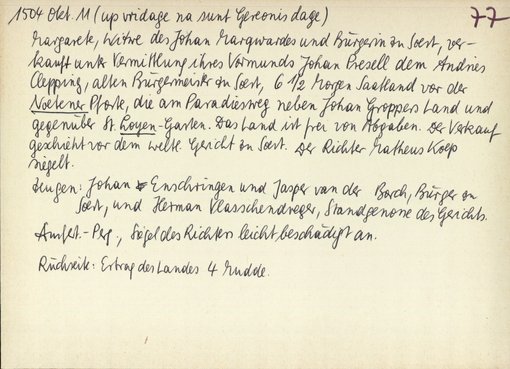 1504 Okt. 11 (up vridage na sunt Gereonis dage) 77
Margarete, Witwe des Johan Marquardes und Bürgerin zu Soest, ver-
kauft unter Vermittlung ihres Vormunds Johan Presell dem Andries
Clepping, alten Bürgermeister zu Soest, 6 1/2 Morgen Saatland vor der
Noetener Pforte, die am Paradiesweg neben Johan Groppers Land und
gegenüber St. Loyen-Garten. Das Land ist frei von Abgaben. Der Verkauf
geschieht vor dem weltl. Gericht zu Soest. Der Richter Matheus Koep
siegelt.
Zeugen: Johan Enschringen und Jasper van der Borch, Bürger zu
Soest, und Herman Vlasschendreger, Standgenosse des Gerichts.
Ausfert.-Perg., Siegel des Richters leicht beschädigt an.
Rückseite: Ertrag des Landes 4 Mudde.